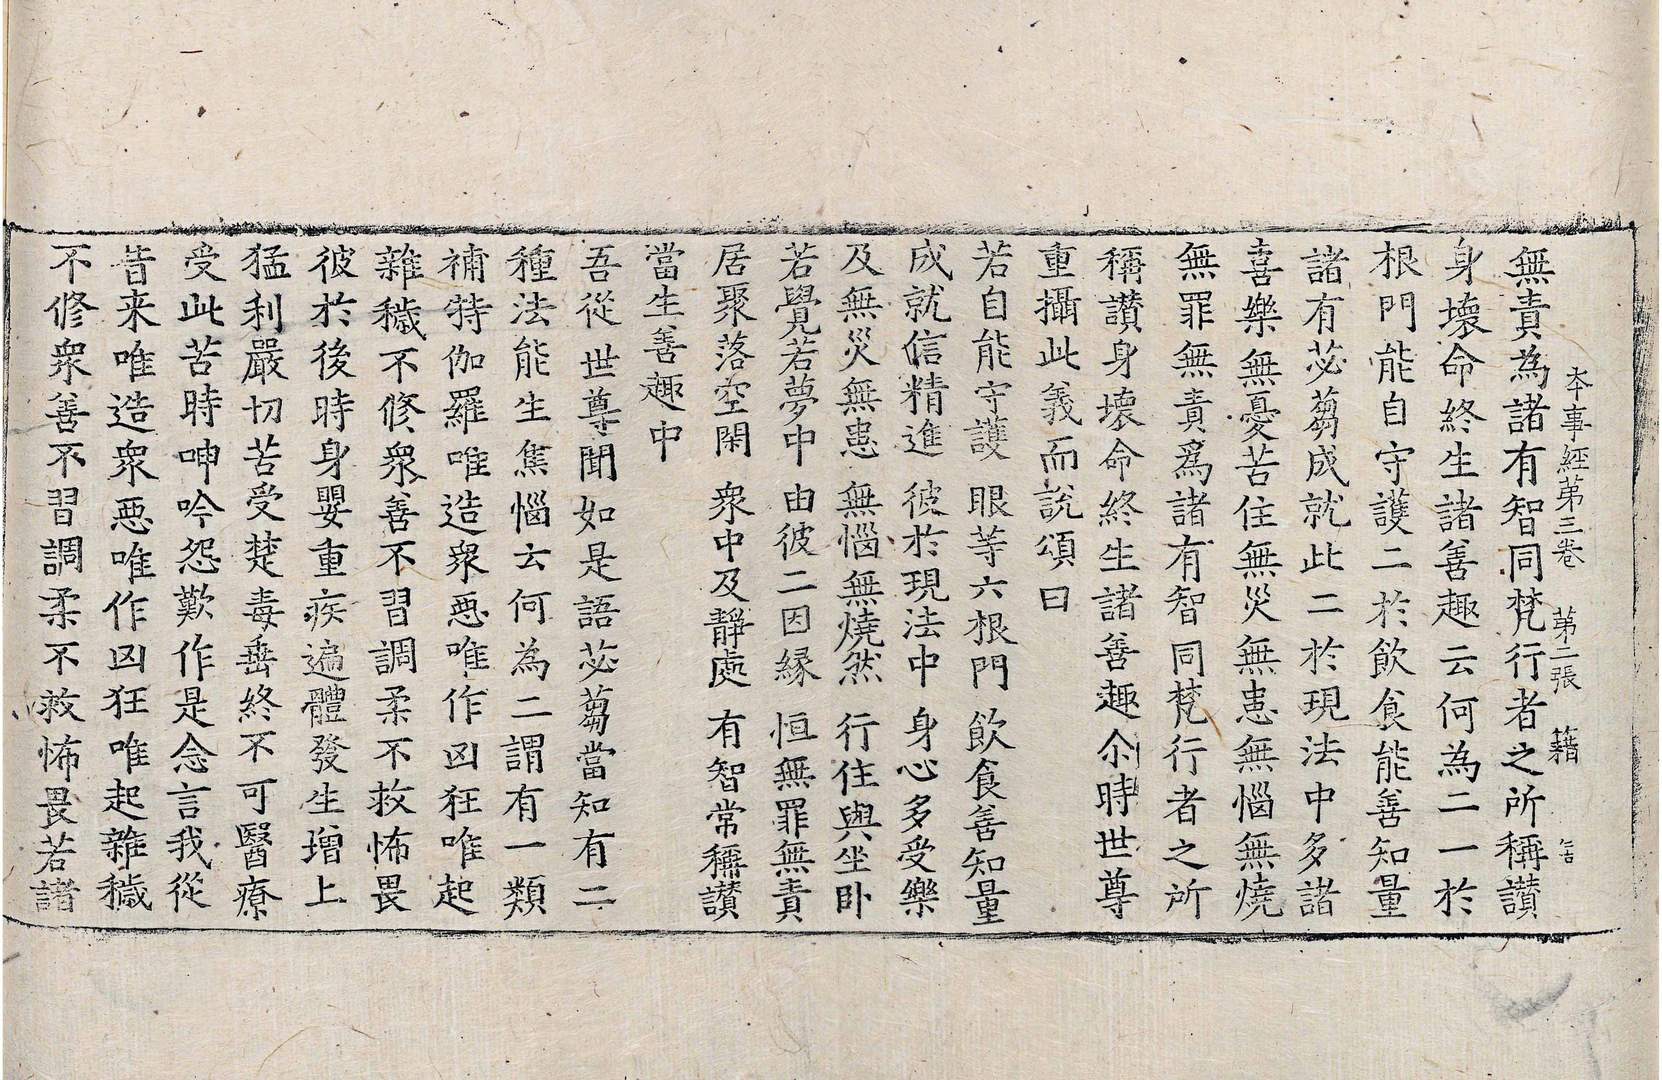 本事經第三卷 第二張 籍
無責為諸有智同梵行者之所稱讃
身壞命終生諸善趣云何為二一於
根門能自守護二於飲食能善知量
諸有苾蒭成就此二於現法中多諸
喜樂無憂苦住無災無恚無惱無燒
無罪無責爲諸有智同梵行者之所
稱讃身壞命終生諸善趣尒時世尊
重攝此義而說頌曰
若自能守護 眼等六根門 飲食善知量
成就信精進 彼於現法中 身心多受樂
及無災無恚 無惱無燒然 行住與坐卧
若覺若夢中 由彼二因緣 恒無罪無責
居聚落空閑 衆中及靜處 有智常稱讃
當生善趣中
吾從世尊聞如是語苾蒭當知有二
種法能生焦惱云何為二謂有一類
補特伽羅唯造衆惡唯作凶狂唯起
雜穢不修衆善不習調柔不救怖畏
彼於後時身嬰重疾遍體發生增上
猛利嚴切苦受楚毒垂終不可醫療
受此苦時呻吟怨歎作是念言我從
昔来唯造衆惡唯作凶狂唯起雜穢
不修衆善不習調柔不救怖畏若諸